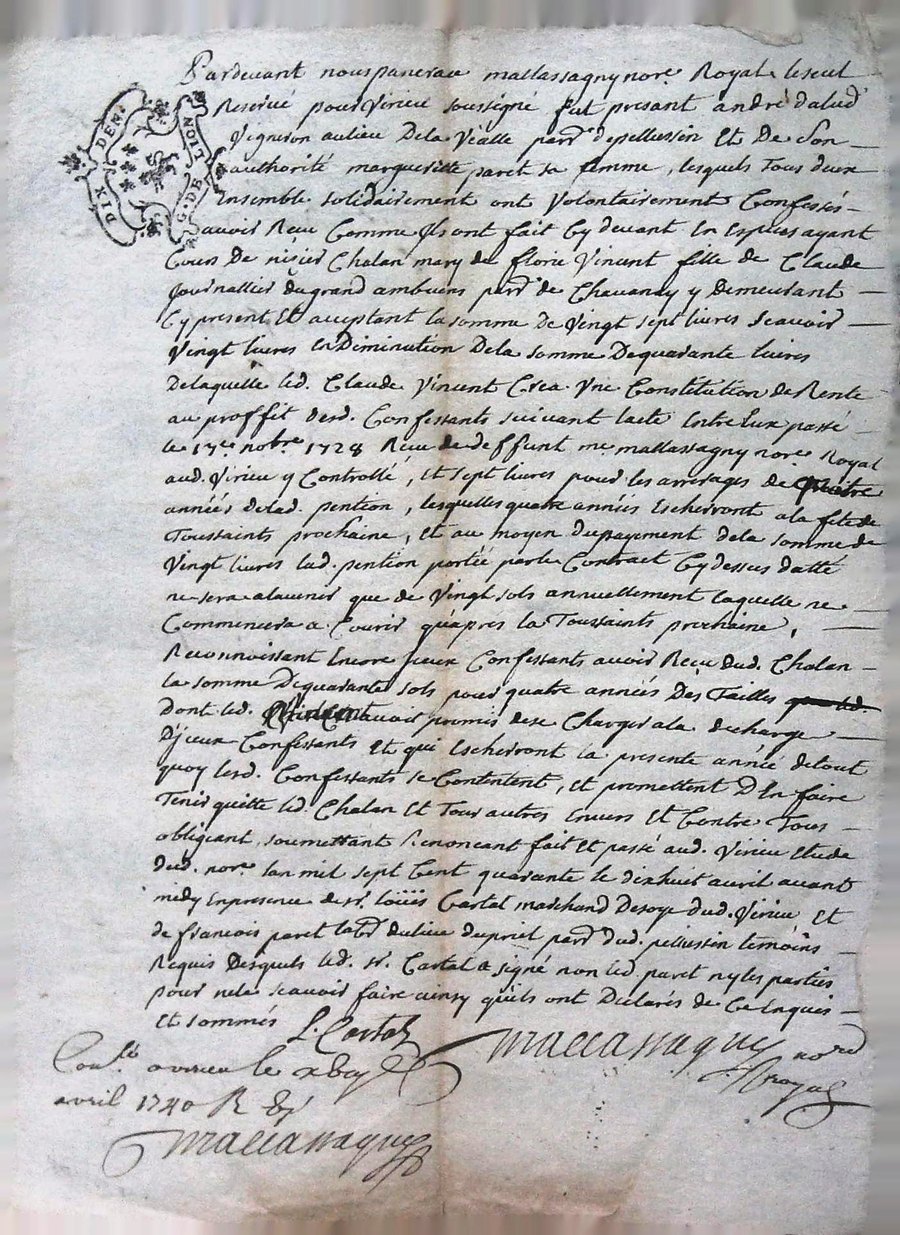 DIX DEN. G. DE LION
Pardevant nous pancrace mallassagny nore Royal le seul
Reservé pour Virieu soussigné fut présant andré dalud
Vigneron au lieu De la Vialle parr. de pellussin Et De Son
authorité margueritte paret sa femme, lesquels tous deux
Ensemble solidairement ont Volontairement Confessés
avoir Reçu Comme Ils ont fait Cy devant En Espèces ayant
Cours De nisier Chalan mary de florie Vincent fille de Claude
Journallier du grand ambuens parr. de Chavanay y Demeurant
Cy present Et acceptant la somme de Vingt sept livres scavoir
Vingt livres En Diminution De la somme De quarante livres
De laquelle led. Claude Vincent Crea Vne Constitution de Rente
au proffit desd. Confessants suivant lacte Entre Eux passé
le 17e nobre. 1728 Reçu de deffunt me mallassagny nore Royal
aud. Virieu y Controllé, Et sept livres pour les arrerages de quatre
années de lad. pention, lesquelles quatre années Escherront a la fete de
Toussaints prochaine, Et au moyen du payement de la somme de
Vingt livres lad. pention portée par le Contract Cy dessus datté
ne sera alavenir que de Vingt sols annuellement laquelle ne
Commencera a Courir qu'apres la Toussaints prochaine,
Reconnoissant Encore Iceux Confessants avoir Reçu dud. Chalan
la somme De quarante sols pour quatre années Des Tailles
Dont led. Vincent avoit promis de se Charger a la decharge
D'iceux Confessants Et qui Escherront la presente année de tout
quoy lesd. Confessants se Contentent, et promettent D'En faire
Tenir quitte led. Chalan Et Tous autres Envers Et Contre Tous
obligeant, soumettant Renoncant fait Et passé aud. Virieu Etude
dud. nore. lan mil sept Cent quarante le dixhuit avril avant
midy En presence de sr. loüis Cartal marchand De soye dud. Virieu Et
de francois paret labr du lieu du priel parr dud. pellussin temoins
Requis Desquels led. sr. Cartal a signé non led paret ny les parties
pour ne le scavoir faire ainsy qu'ils ont Déclarés de Ce Enquis
Et sommés L. Cartal
mallassagny nore
royal
Conlé a virieu le
avril 1740 R
mallassagny